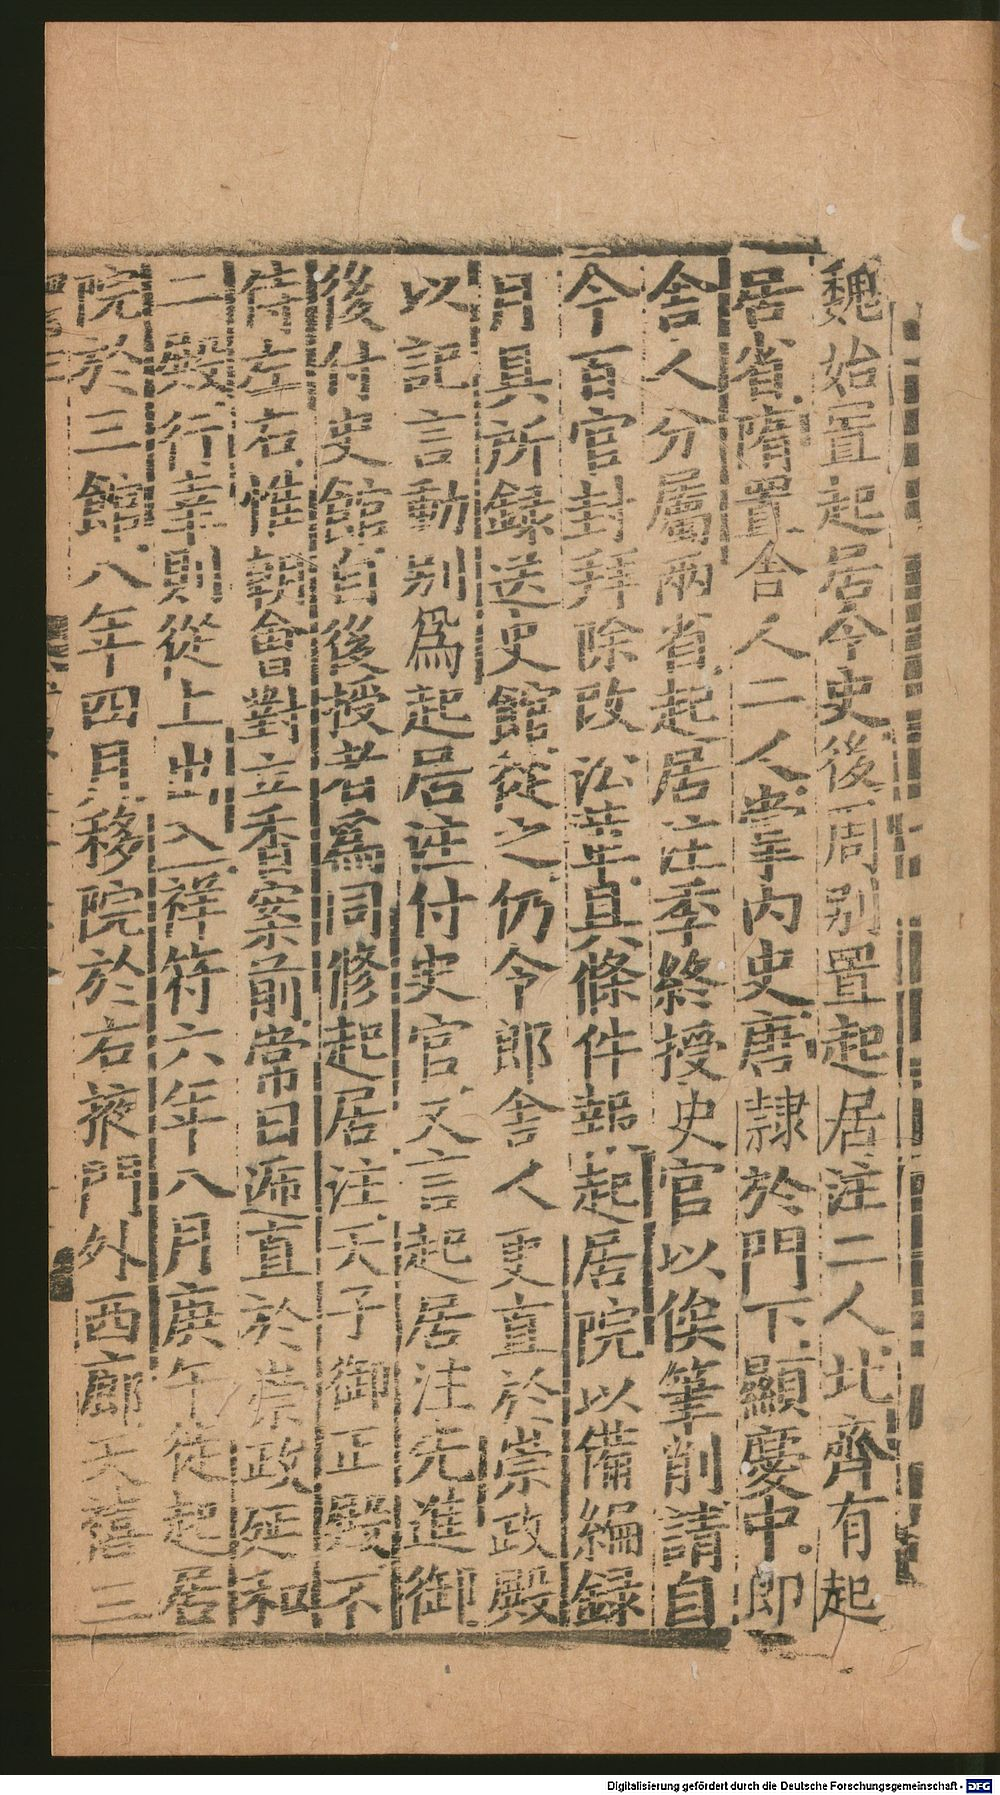 魏始置起居令史後周別置起居注二人北齊有起
居省隋置舍人二人掌內史唐隸於門下顯慶中即
舍人分屬兩省起居注季終授史官以俟筆削請自
今百官封拜除改沿革年具條件報起居院以備編錄
月具所錄送史館從之仍令郎舍人更直於崇政殿
以記言動别爲起居注付史官又言起居注先進御
後付史館自後授者爲同修起居注天子御正殿不
侍左右惟朝會對立香案前常日遞直於崇政延和
二殿行幸則從上出入祥符六年八月庚午徙起居
院於三館八年四月移院於右掖門外西廊天禧三
Digitalisierung gefördert durch die Deutsche Forschungsgemeinschaft - DFG